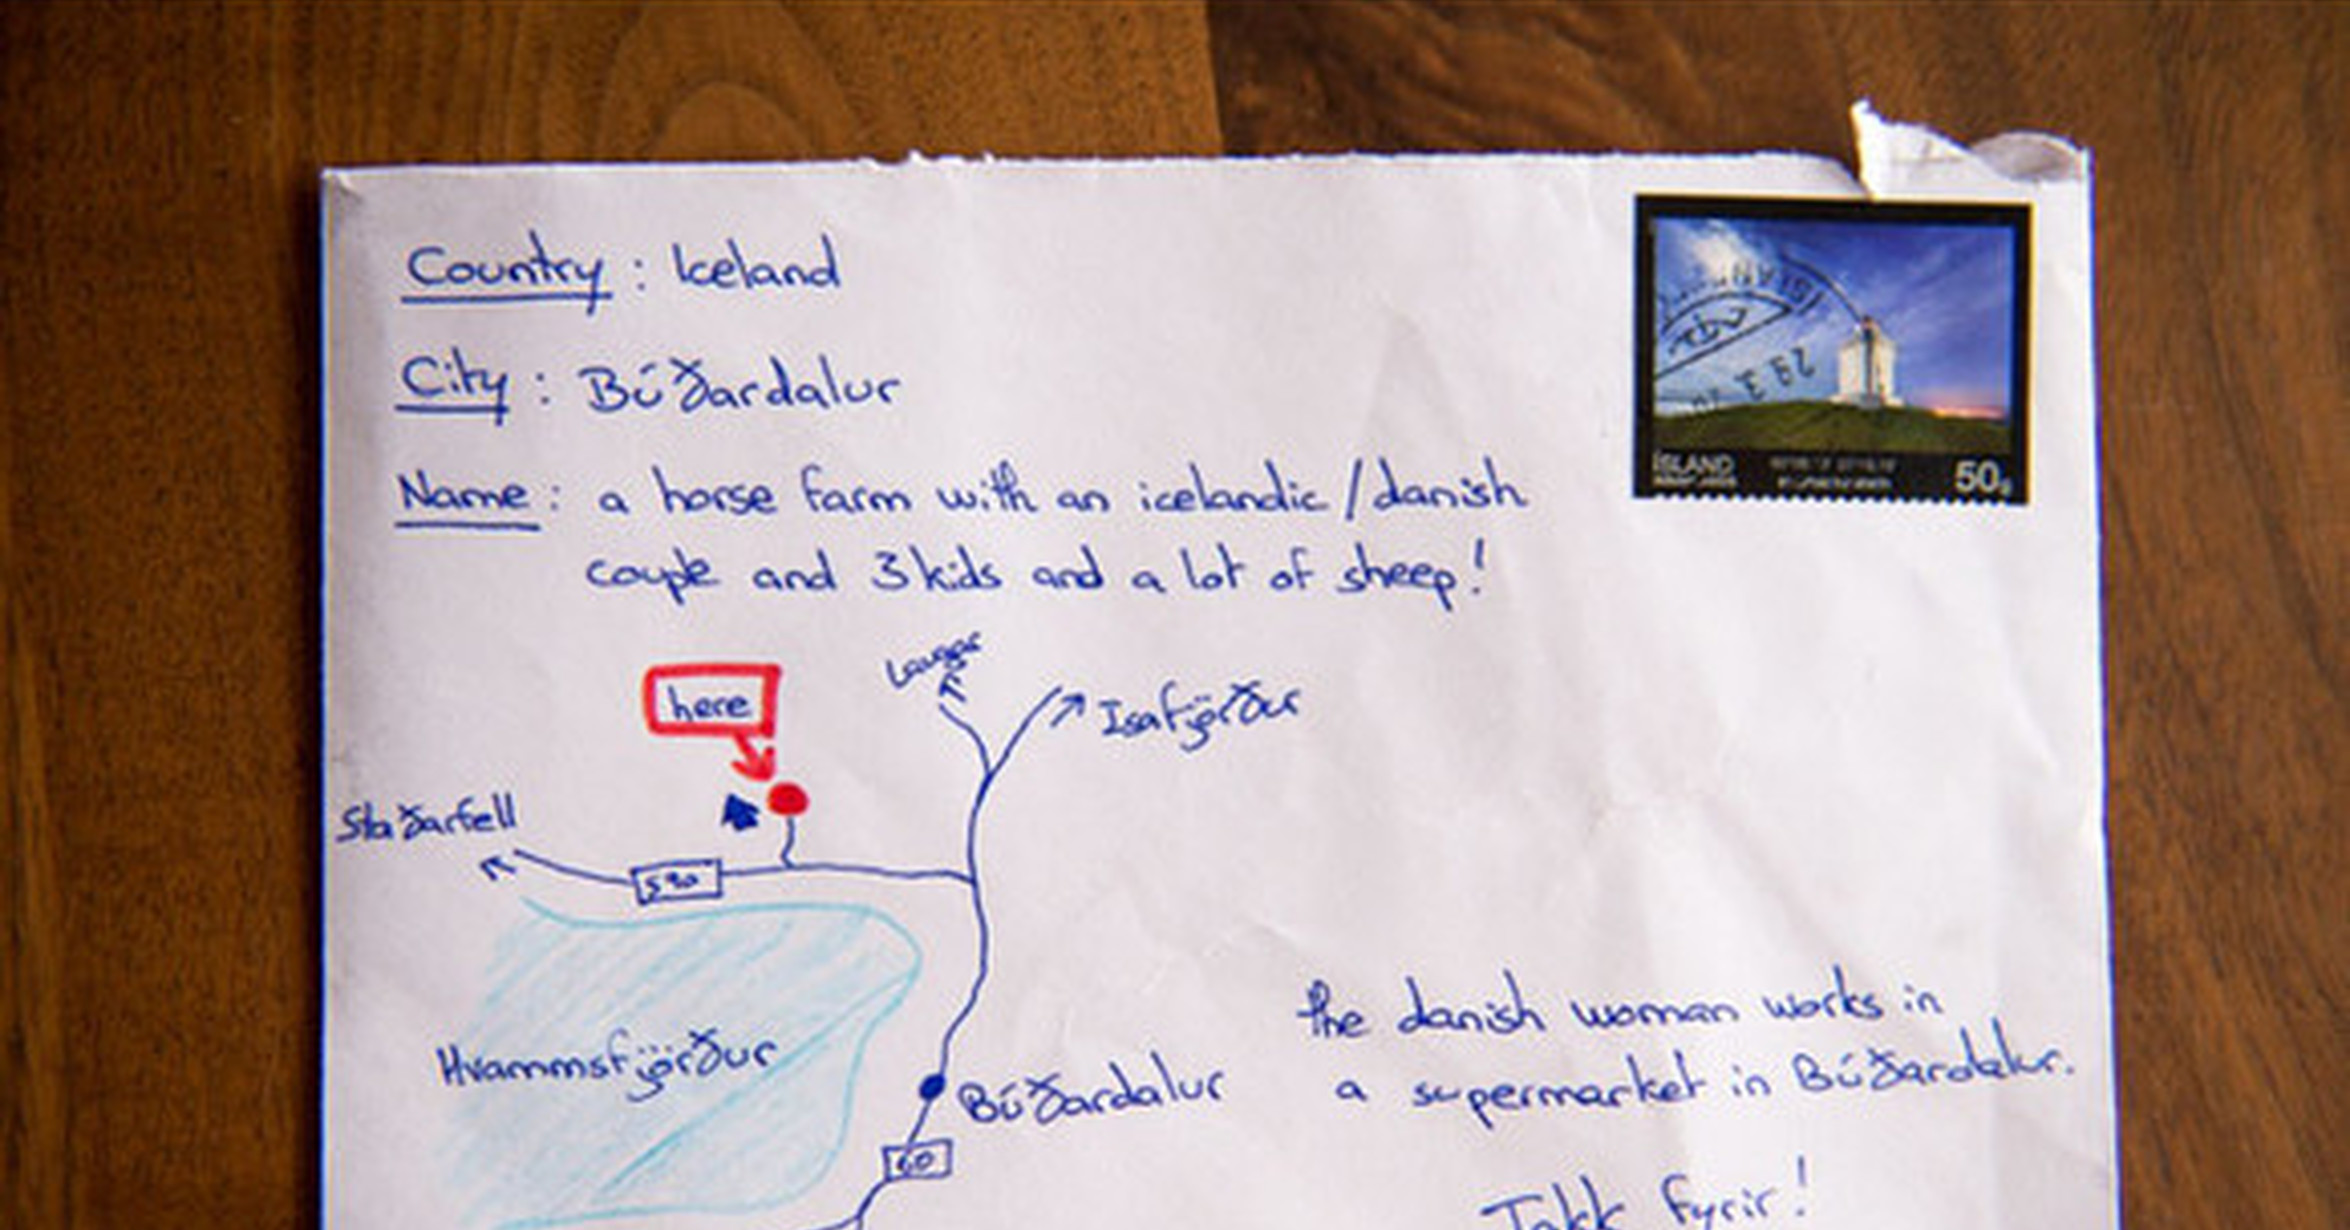 Country : Iceland
City : Búðardalur
Name : a horse farm with an icelandic / danish
couple and 3 kids and a lot of sheep!
here
Laugar
Isafjörður
Staðarfell
590
Hvammsfjörður
Búðardalur
60
the danish woman works in
a supermarket in Búðardalur.
Takk fyrir!
ÍSLAND
50g